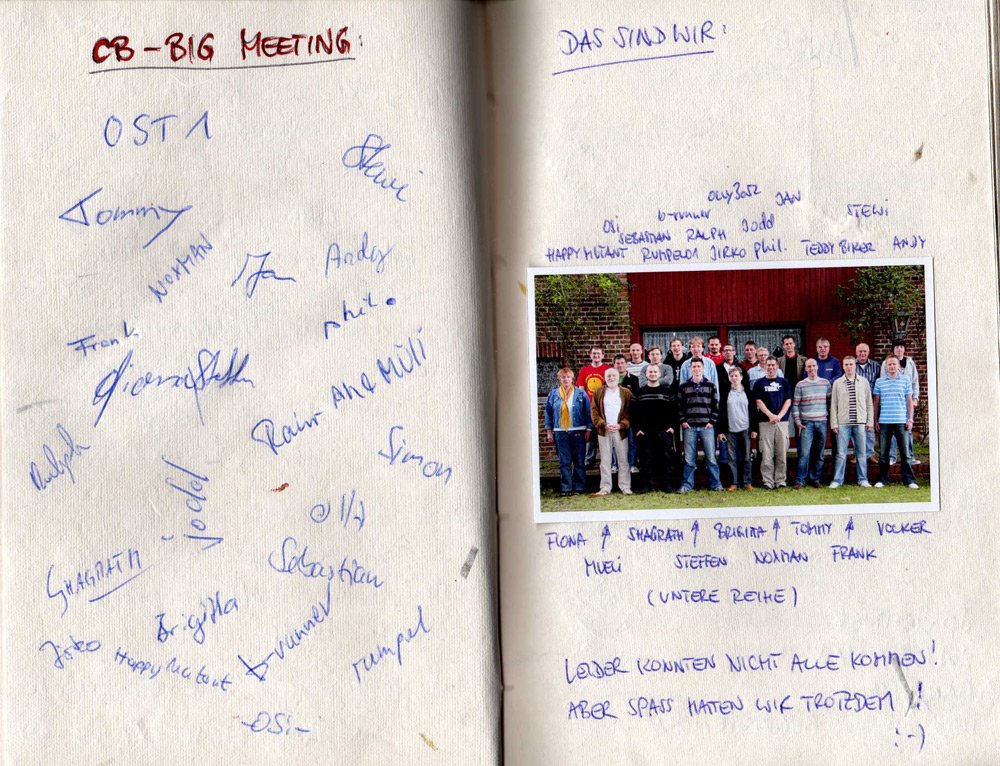 CB-BIG MEETING:
OST 1
Stewi
Tommy
NORMAN
Jan
Andy
phil.
Frank
Steffen
ANA MÜLI
Ralph
Simon
Jodd
olly
SHAGRATH
Sebastian
Brigitta
Jirko
HappyMutant
b-runner
rumpel
-OSi-
DAS SIND WIR:
olly3052 JAN
OSi b-runner STEWI
SEBASTIAN RALPH Jodd
HAPPYMUTANT RUMPEL01 JIRKO phil. TEDDYBIKER ANDY
FIONA ↑ SHAGRATH ↑ BRIGITTA ↑ TOMMY ↑ VOLKER
MUELI STEFFEN NORMAN FRANK
(UNTERE REIHE)
LEIDER KONNTEN NICHT ALLE KOMMEN!
ABER SPASS HATTEN WIR TROTZDEM!
:-)